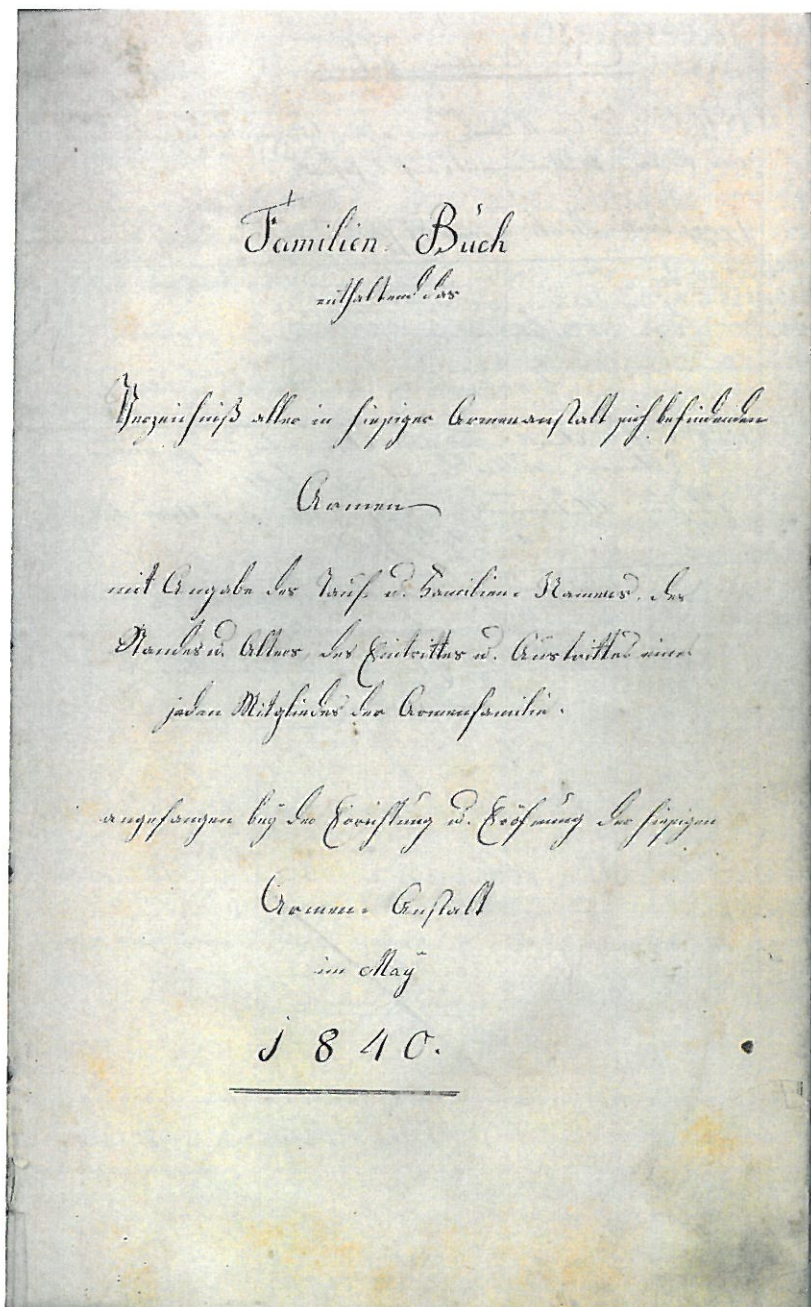 Familien Buch
enthaltend das
Verzeichniß aller in hiesiger Armenanstalt sich befindenden
Armen
mit Angabe des Tauf- u. Familien-Namens, des
Standes u. Alters, des Eintrittes u. Austrittes eines
jeden Mitgliedes der Armenfamilie.
angefangen bey der Errichtung u. Eröfnung der hiesigen
Armen-Anstalt
im May
1840.